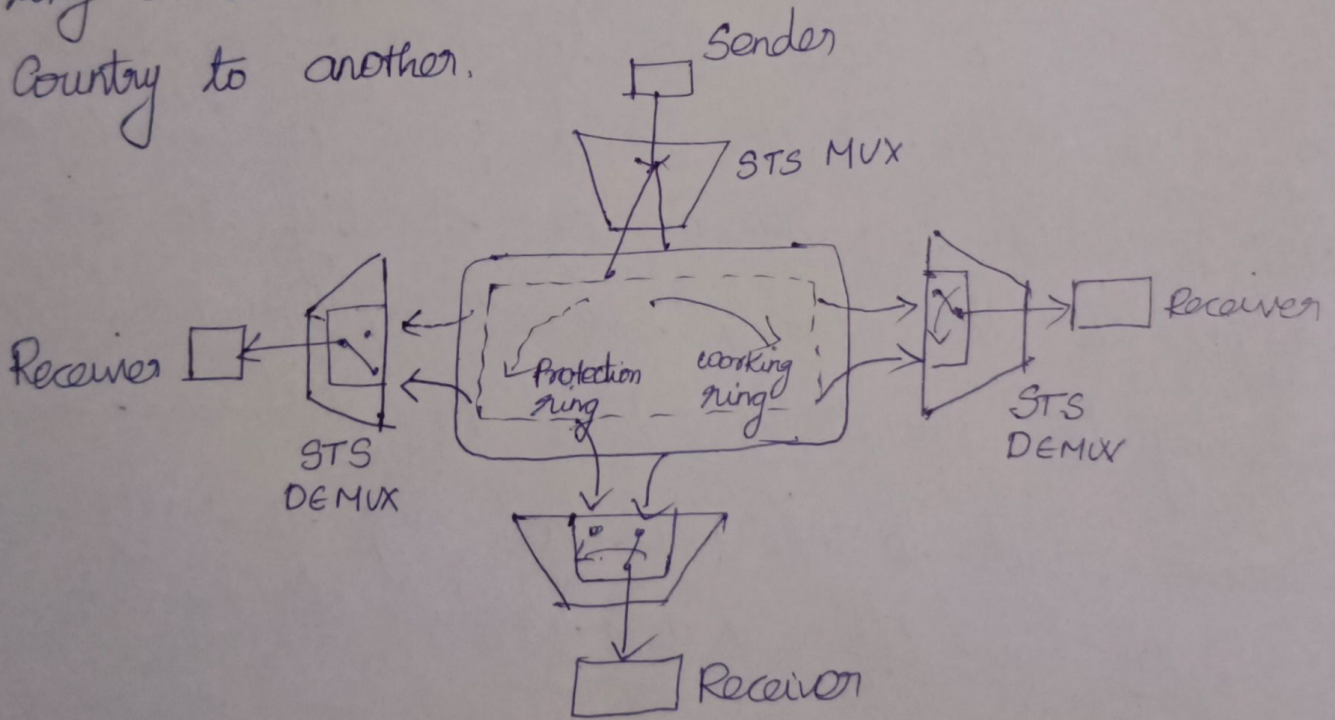 Country to another.
Sender
STS MUX
Receiver
Receiver
Protection
ring
working
ring
STS
DEMUX
STS
DEMUX
Receiver